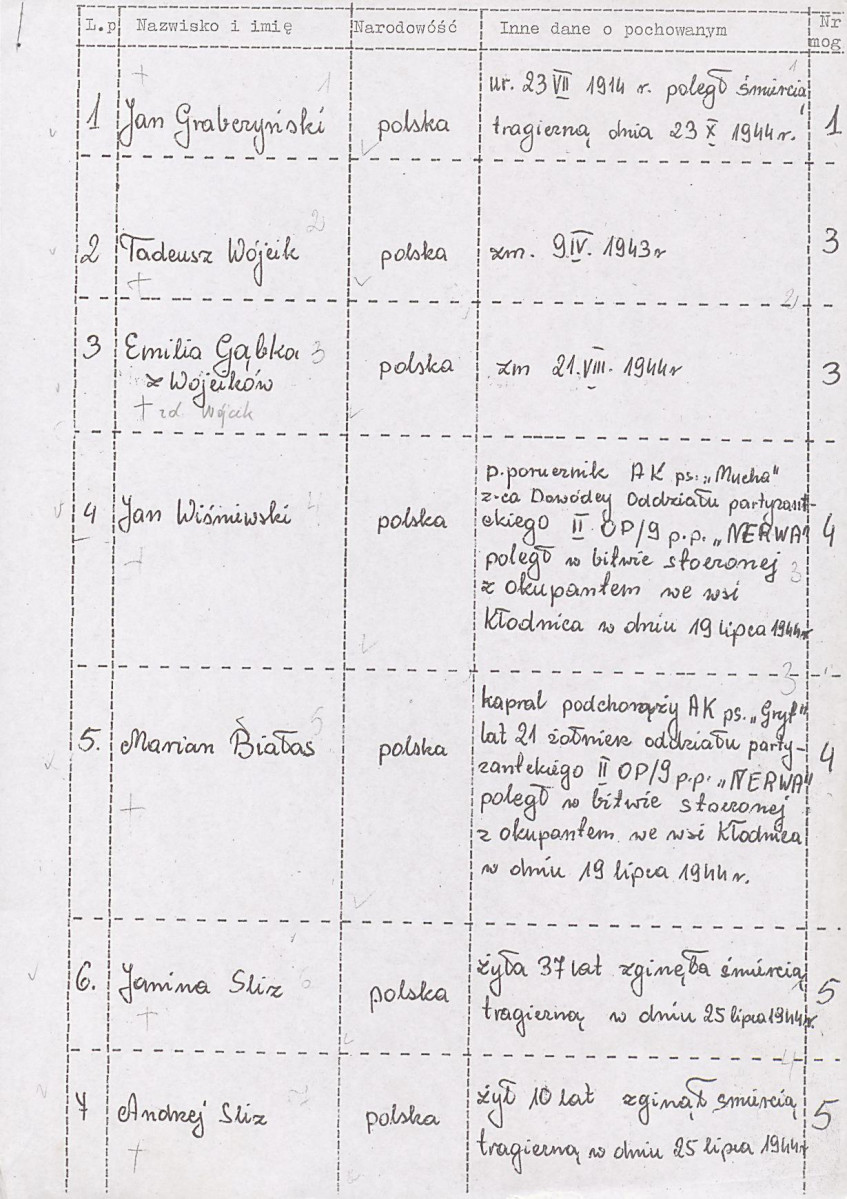 L.p Nazwisko i imię Narodowość Inne dane o pochowanym Nr mog
1 Jan Grabczyński polska ur. 23 VII 1914 r. poległ śmiercią 1
tragiczną dnia 23 X 1944 r.
2 Tadeusz Wójcik polska zm. 9.IV. 1943 r 3
3 Emilia Gąbka 3
z Wójcików polska zm 21.VIII. 1944 r 3
zd. Wójcik
4 Jan Wiśniewski polska p.porucznik AK ps. „Mucha" 4
z-ca Dowódcy Oddziału partyzant-
ckiego II OP/9 p.p. „NERWA"
poległ w bitwie stoczonej
z okupantem we wsi
Kłodnica w dniu 19 lipca 1944 r
5. Marian Białas polska kapral podchorąży AK ps. „Gryf" 4
lat 21 żołnierz oddziału party-
zanckiego II OP/9 p.p. „NERWA"
poległ w bitwie stoczonej
z okupantem we wsi Kłodnica
w dniu 19 lipca 1944 r.
6. Janina Sliz polska żyła 37 lat zginęła śmiercią 5
tragiczną w dniu 25 lipca 1944 r.
7 Andrzej Sliz polska żył 10 lat zginął śmiercią 5
tragiczną w dniu 25 lipca 1944 r